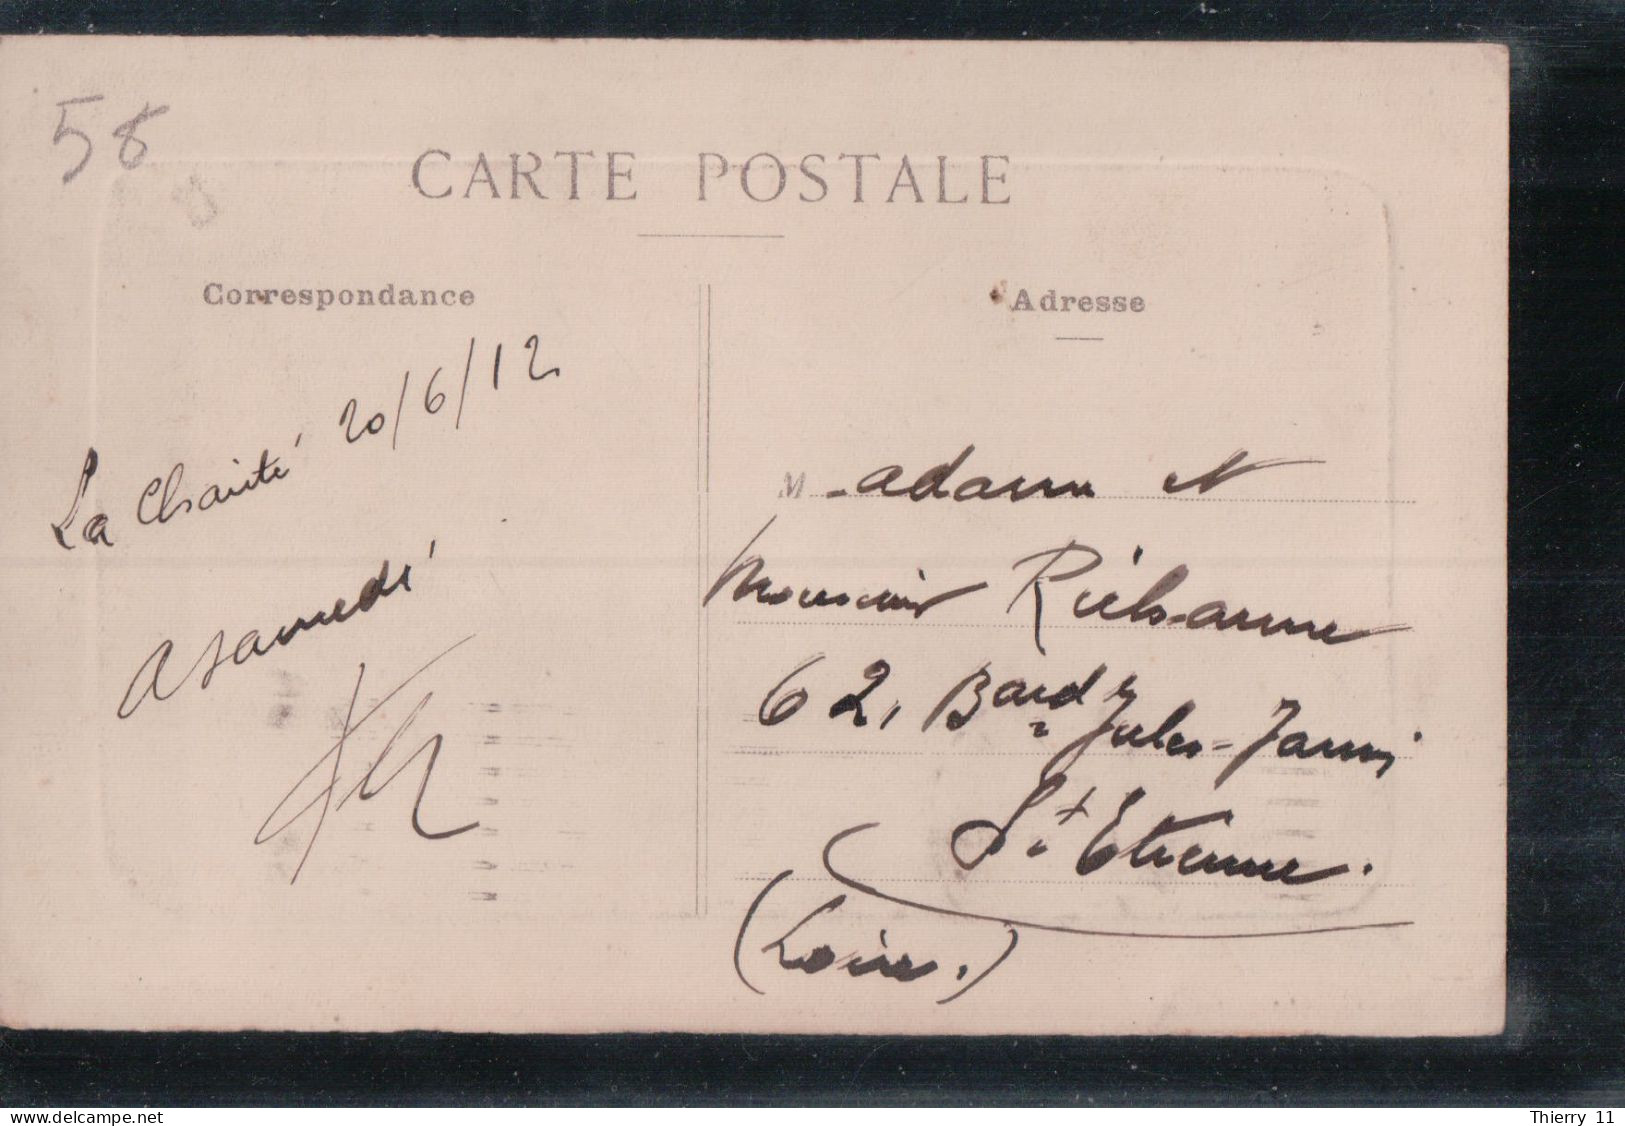 58
CARTE POSTALE
Correspondance
Adresse
La Charité 20/6/12
A samedi
Madame et
Monsieur
62, Bard Jules-Janin
St Etienne.
(Loire.)
delcampe.net
Thierry 11